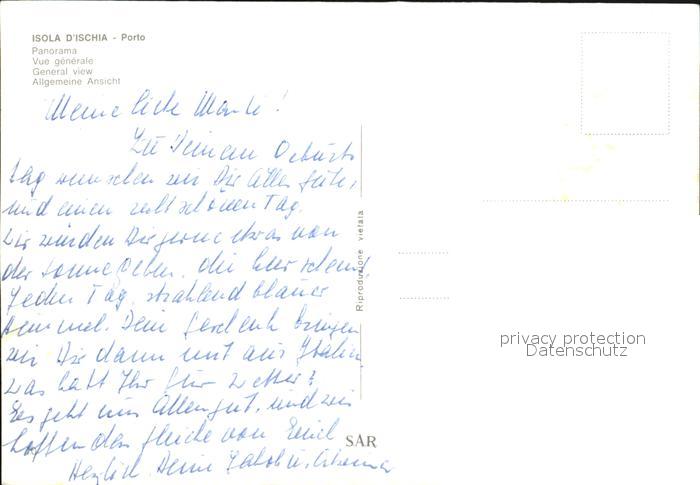 ISOLA D'ISCHIA - Porto
Panorama
Vue générale
General view
Allgemeine Ansicht
Meine liebe
Zu Deinem Geburts
tag wünschen wir Dir Alles Gute,
und einen recht schönen Tag.
Wir würden Dir gerne etwas von
der Sonne geben, die hier scheint,
Jeden Tag strahlend blauer
Himmel. Dein Geschenk bringen
wir Dir dann mit aus Italien
Was habt Ihr für Wetter?
Es geht uns Allen gut, und wir
hoffen das gleiche von Euch
Herzlich Deine Jakob u.
Riproduzione vietata
SAR
privacy protection
Datenschutz